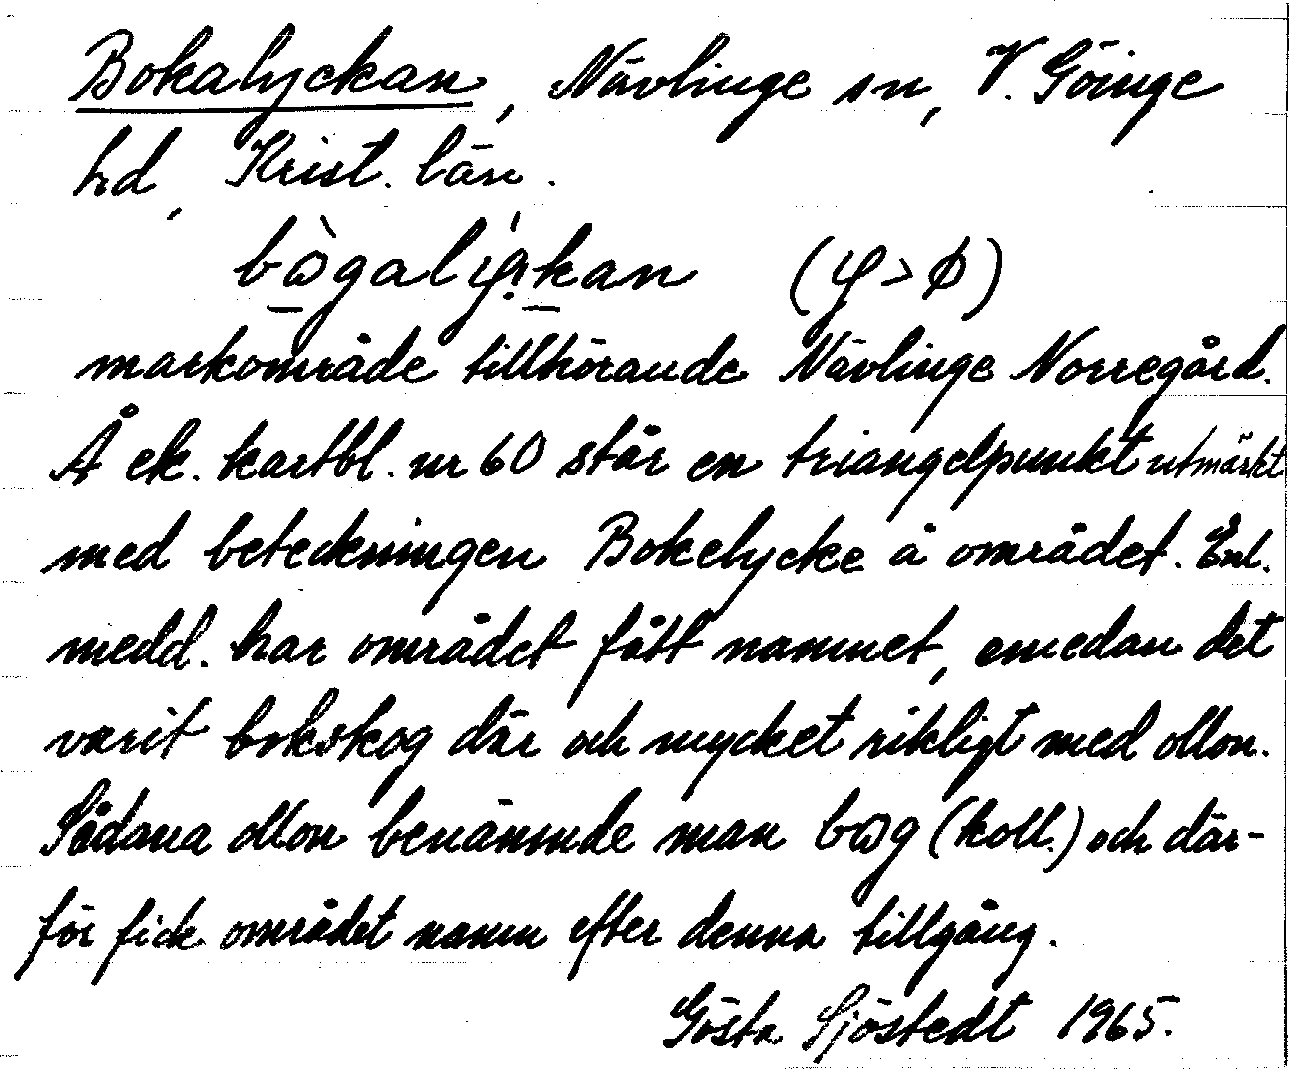 Bokalyckan, Nävlinge sn, V. Göinge
hd, Krist. län.
(φ > ϕ)
markområde tillhörande Nävlinge Norregård.
Å ek. kartbl. nr 60 står en triangelpunkt utmärkt
med beteckningen Bokelycke å området. Enl.
medd. har området fått namnet, emedan det
varit bokskog där och mycket rikligt med ollon.
Sådana ollon benämnde man bɷg (koll.) och där-
för fick området namn efter denna tillgång.
Gösta Sjöstedt 1965.